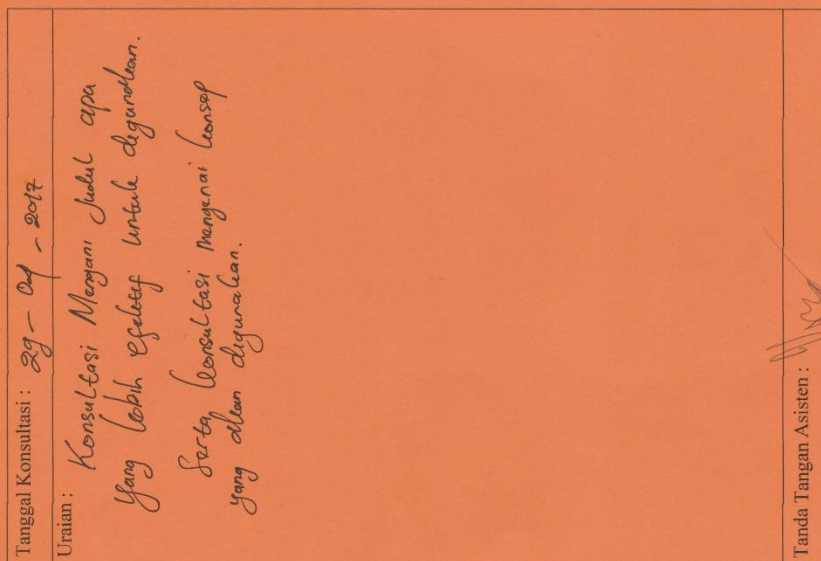 Tanggal Konsultasi : 29 - - 2017
Uraian :
Konsultasi Mengani Judul apa
yang lebih efektif untuk digunakan.
Serta konsultasi mengenai konsep
yang akan digunakan.
Tanda Tangan Asisten :